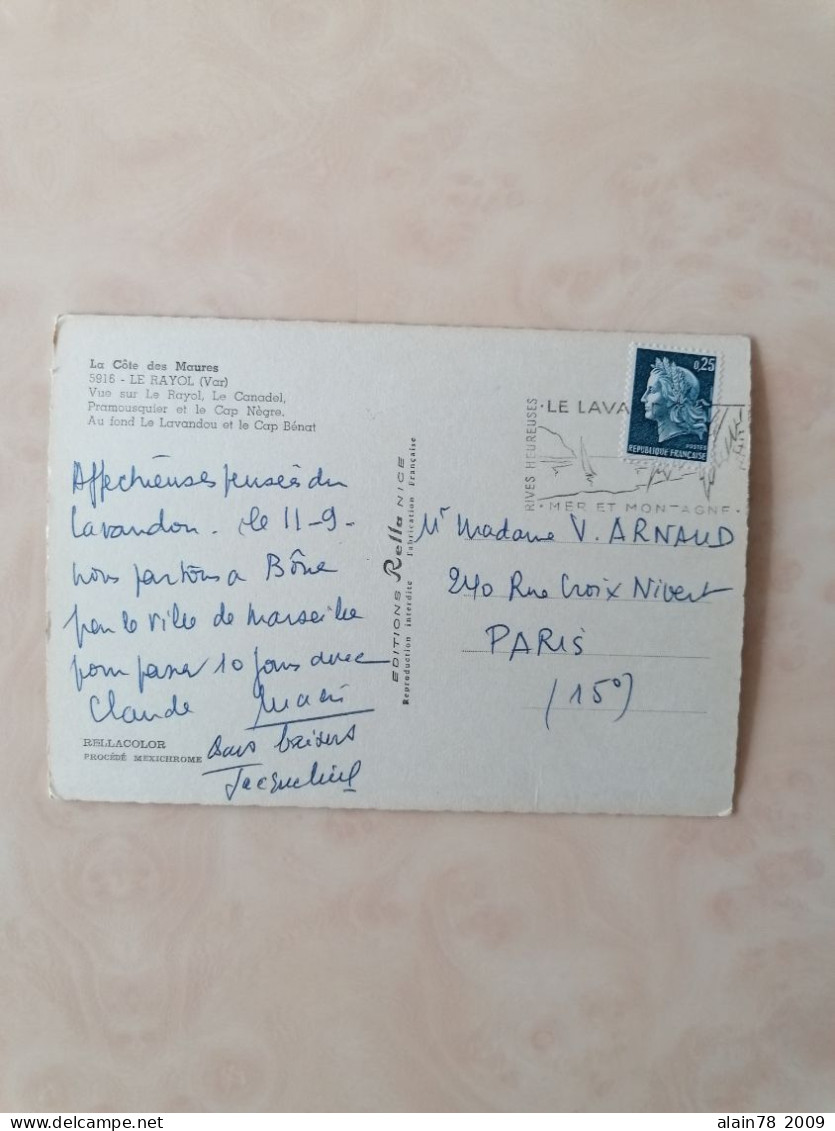 La Côte des Maures
5916 - LE RAYOL (Var)
Vue sur Le Rayol, Le Canadel,
Pramousquier et le Cap Nègre.
Au fond Le Lavandou et le Cap Bénat
Affectueuses pensées du
Lavandou. Le 11-9.
nous partons a Bône
par le ville de Marseille
pour passer 10 jours avec
Claude
bons baisers
Jacqueline
RELLACOLOR
PROCÉDÉ MEXICHROME
EDITIONS Rella NICE
Reproduction interdite Fabrication Française
0,25
POSTES
REPUBLIQUE FRANÇAISE
RIVES HEUREUSES
·LE LAVA
·MER ET MONTAGNE·
Mr Madame V. ARNAUD
240 Rue Croix Nivert
PARIS
(15°)
alain78 2009